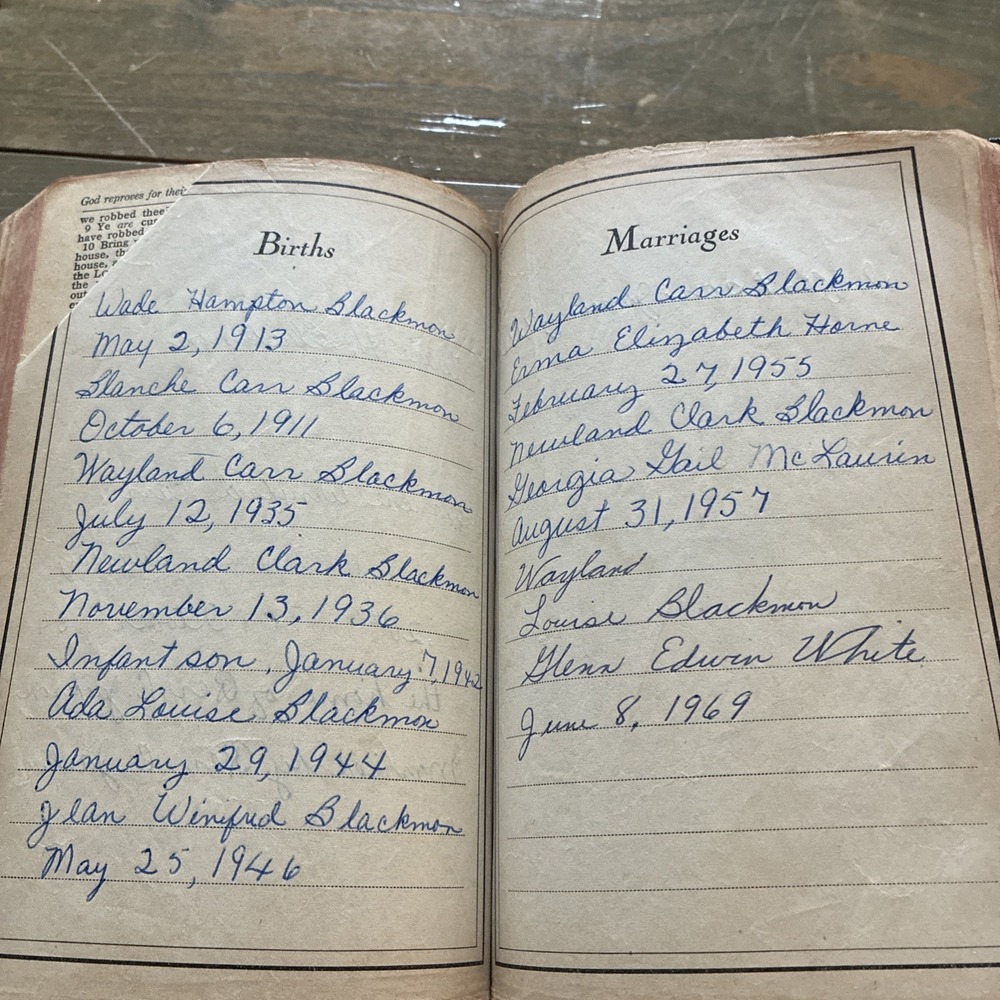 God reproves for their
we robbed thee
9 Ye are
have robbed
10 Bring
house,
house,
the
Births
Wade Hampton Blackmon
May 2, 1913
Blanche Carr Blackmon
October 6, 1911
Wayland Carr Blackmon
July 12, 1935
Newland Clark Blackmon
November 13, 1936
Infant son, January 7, 1942
Ada Louise Blackmon
January 29, 1944
Jean Winifred Blackmon
May 25, 1946
Marriages
Wayland Carr Blackmon
Erma Elizabeth Horne
February 27, 1955
Newland Clark Blackmon
Georgia Gail McLaurin
August 31, 1957
Wayland
Louise Blackmon
Glenn Edwin White
June 8, 1969